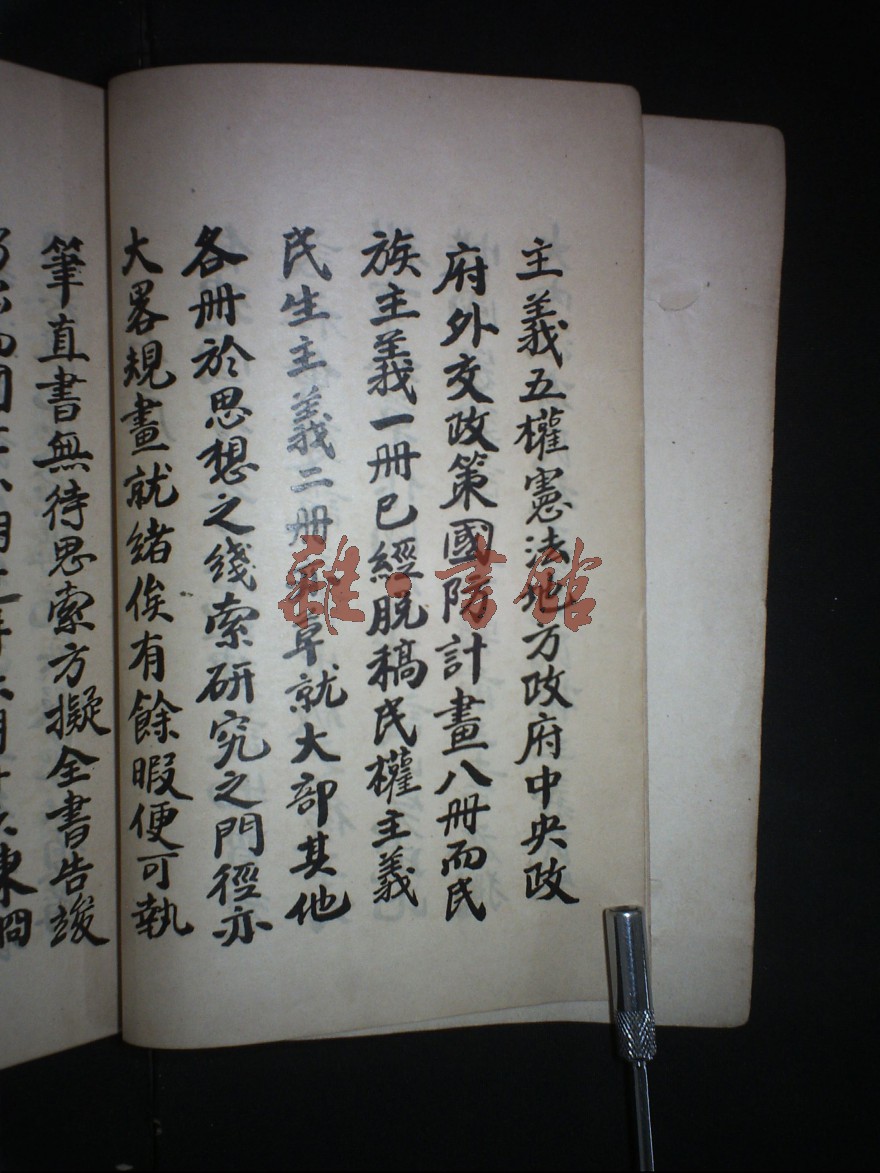 主義五權憲法地方政府中央政
府外交政策國防計畫八冊而民
族主義一冊已經脱稿民權主義
民生主義二冊草就大部其他
各冊於思想之綫索研究之門徑亦
大畧規畫就緒俟有餘暇便可執
筆直書無待思索方擬全書告竣
雜·書館